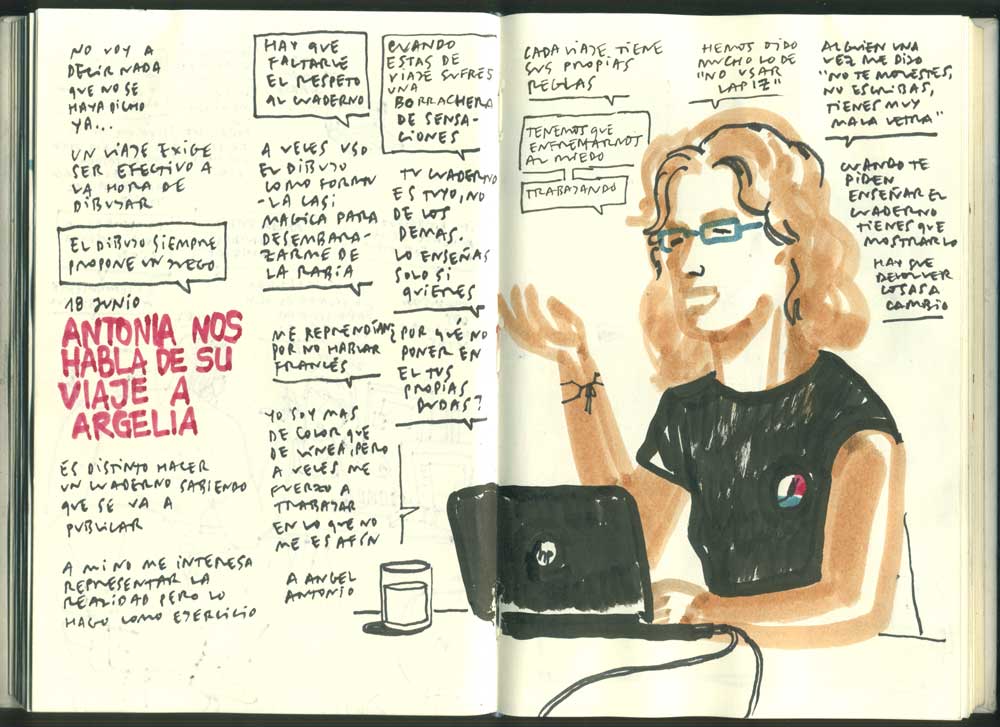 NO VOY A
DECIR NADA
QUE NO SE
HAYA DICHO
YA...
UN VIAJE EXIGE
SER EFECTIVO A
LA HORA DE
DIBUJAR
EL DIBUJO SIEMPRE
PROPONE UN JUEGO
18 JUNIO
ANTONIA NOS
HABLA DE SU
VIAJE A
ARGELIA
ES DISTINTO HACER
UN CUADERNO SABIENDO
QUE SE VA A
PUBLICAR
A MI NO ME INTERESA
REPRESENTAR LA
REALIDAD PERO LO
HAGO COMO EJERCICIO
HAY QUE
FALTARLE
EL RESPETO
AL CUADERNO
A VECES USO
EL DIBUJO
COMO FORMU
-LA CASI
MAGICA PARA
DESEMBARA-
ZARME DE
LA RABIA
ME REPRENDÍAN
POR NO HABLAR
FRANCÉS
YO SOY MAS
DE COLOR QUE
DE LÍNEA, PERO
A VECES ME
FUERZO A
TRABAJAR
EN LO QUE NO
ME ES AFÍN
A ANGEL
ANTONIO
CUANDO
ESTAS DE
VIAJE SUFRES
UNA
BORRACHERA
DE SENSA-
CIONES
TU CUADERNO
ES TUYO, NO
DE LOS
DEMAS.
LO ENSEÑAS
SOLO SI
QUIERES
¿POR QUÉ NO
PONER EN
EL TUS
PROPIAS
DUDAS?
CADA VIAJE TIENE
SUS PROPIAS
REGLAS
TENEMOS QUE
ENFRENTARNOS
AL MIEDO
TRABAJANDO
HEMOS OIDO
MUCHO LO DE
"NO USAR
LAPIZ"
ALGUIEN UNA
VEZ ME DIJO
"NO TE MOLESTES,
NO ESCRIBAS,
TIENES MUY
MALA LETRA"
CUANDO TE
PIDEN
ENSEÑAR EL
CUADERNO
TIENES QUE
MOSTRARLO
HAY QUE
DEVOLVER
COSAS A
CAMBIO
hp